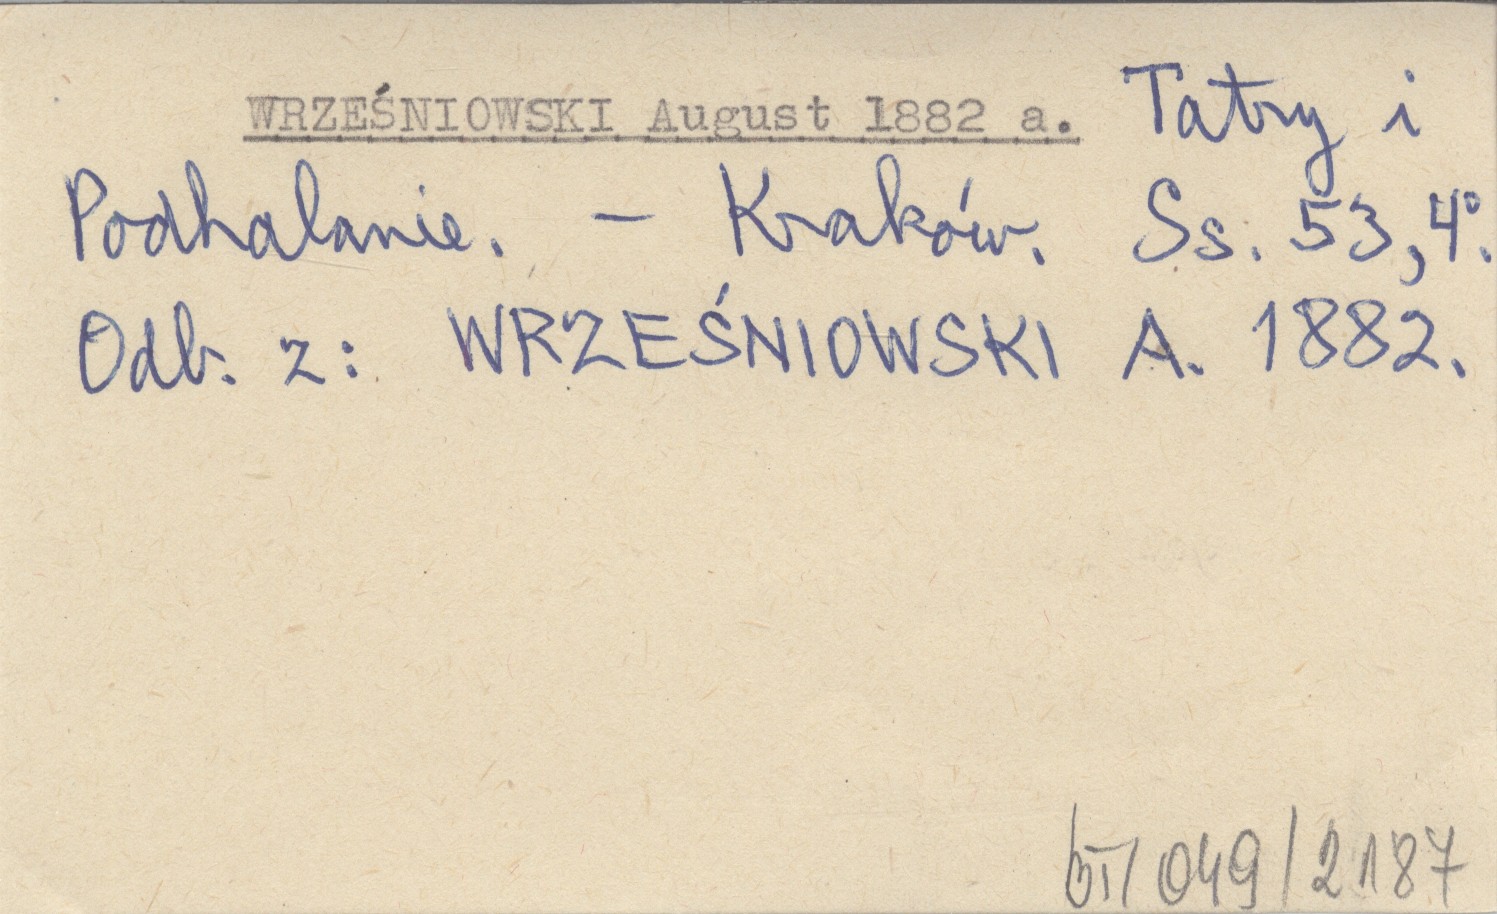 WRZEŚNIOWSKI August 1882 a. Tatry i
Podhalanie. – Kraków. Ss. 53, 4°.
Odb. z: WRZEŚNIOWSKI A. 1882.
049/2187